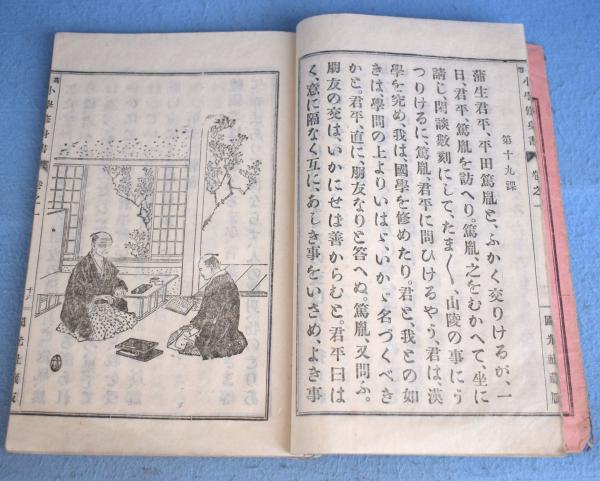 第十九課
蒲生君平、平田篤胤と、ふかく交りけるが、一
日、君平、篤胤を訪へり。篤胤、之をむかへて、坐に
請し、閑談數刻にして、たま〱、山陵の事に、う
つりけるに、篤胤、君平に問ひけるやう、君は、漢
學を究め、我は、國學を修めたり。君と、我との如
きは、學問の上よりいはゞ、いかゞ名づくべき
かと。君平、直に、朋友なりと答へぬ。篤胤、又問ふ。
朋友の交は、いかにせは善からむと。君平曰は
く、意に隔なく互に、あしき事をいさめ、よき事
小學修身書
卷之一
小學修身書
卷之一